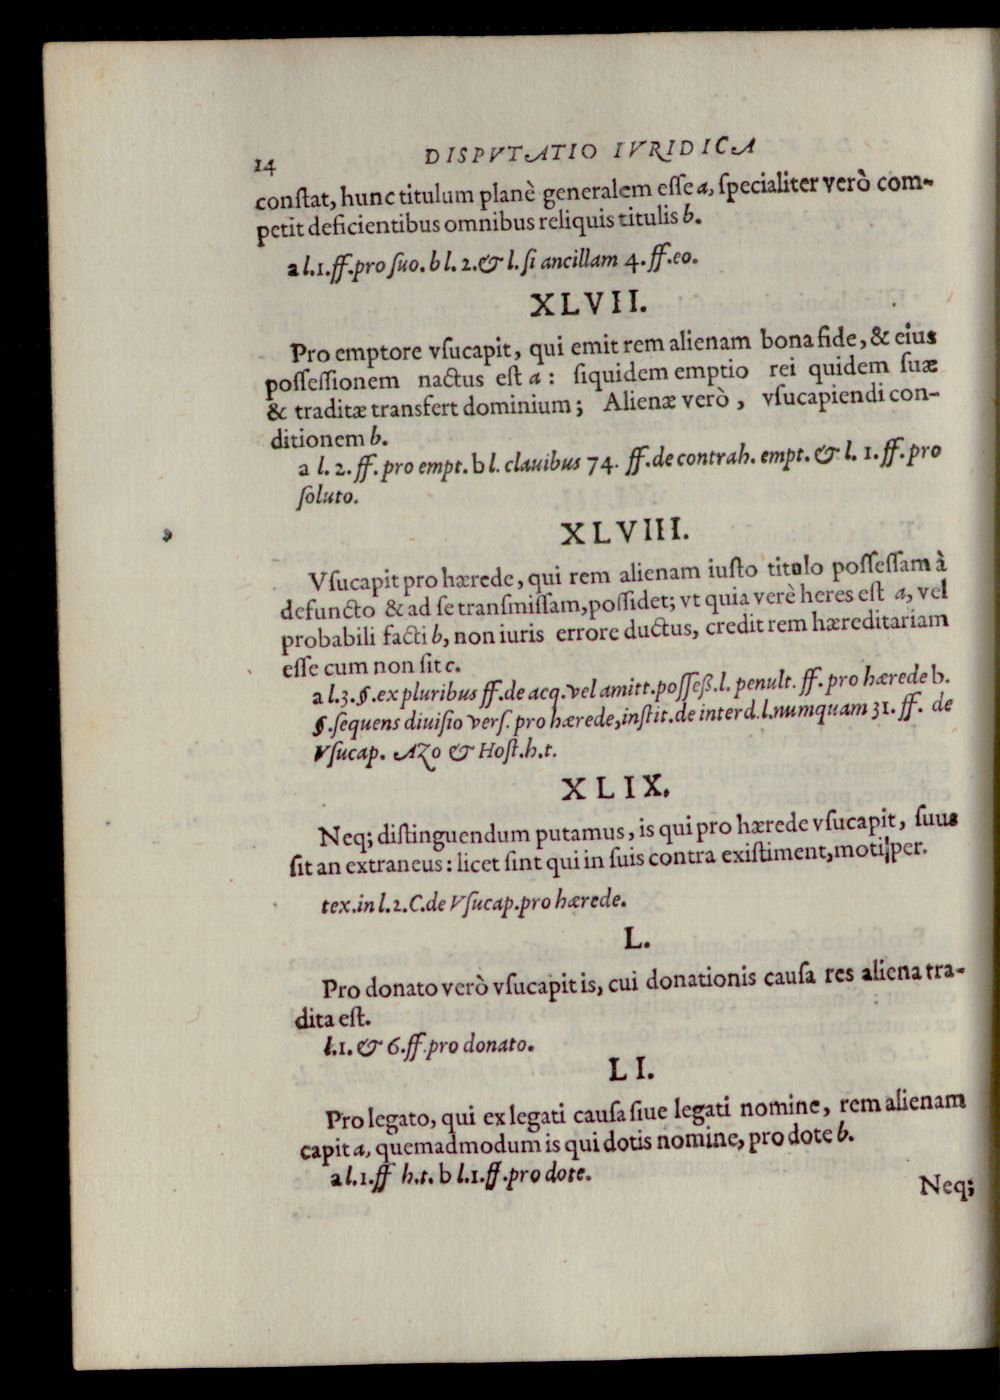 14 DISPVTATIO IVRIDICA
conſtat, hunc titulum planè generalem eſſe a, ſpecialiter verò com-
petit deficientibus omnibus reliquis titulis b.
a l.1.ff.pro ſuo. b l. 2. & l. ſi ancillam 4. ff.eo.
XLVII.
Pro emptore vſucapit, qui emit rem alienam bona fide, & eius
poſſeſſionem nactus eſt a: ſiquidem emptio rei quidem ſuæ
& traditæ transfert dominium; Alienæ verò, vſucapiendi con-
ditionem b.
a l. 2. ff. pro empt. b l. clauibus 74. ff. de contrah. empt. & l. 1. ff. pro
ſoluto.
XLVIII.
Vſucapit pro hærede, qui rem alienam iuſto titulo poſſeſſam à
defuncto & ad ſe tranſmiſſam, poſſidet; vt quia verè heres eſt a, vel
probabili facti b, non iuris errore ductus, credit rem hæreditariam
eſſe cum non ſit c.
a l.3. §. ex pluribus ff. de acq. vel amitt. poſſeß. l. penult. ff. pro hærede b.
§. ſequens diuiſio verſ. pro hærede, inſtit. de interd. l. numquam 31. ff. de
Vſucap. AZo & Hoſt. h.t.
XLIX.
Neq; diſtinguendum putamus, is qui pro hærede vſucapit, ſuus
ſit an extraneus: licet ſint qui in ſuis contra exiſtiment, moti per.
tex. in l.2. C. de Vſucap. pro hærede.
L.
Pro donato verò vſucapit is, cui donationis cauſa res aliena tra-
dita eſt.
l.1. & 6. ff. pro donato.
LI.
Pro legato, qui ex legati cauſa ſiue legati nomine, rem alienam
capit a, quemadmodum is qui dotis nomine, pro dote b.
a l.1. ff h.t. b l.1. ff. pro dote.
Neq;